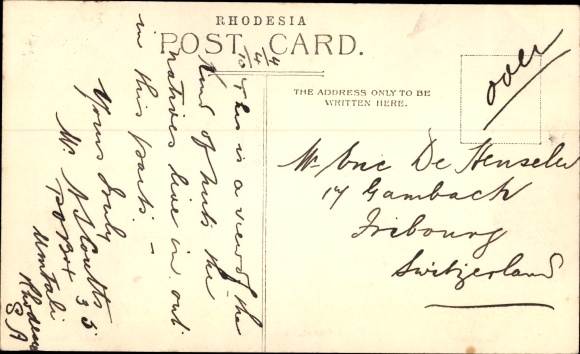 RHODESIA
POST CARD.
THE ADDRESS ONLY TO BE
WRITTEN HERE.
over
10/4/
This is a view of the
kind of huts the
natives live in out
in this parts. –
Yours truly
Mr A J Coutts
P O Box 35
Umtali
Rhodesia
S A
Mr Eric De Henseler
17 Gambach
Fribourg
Switzerland